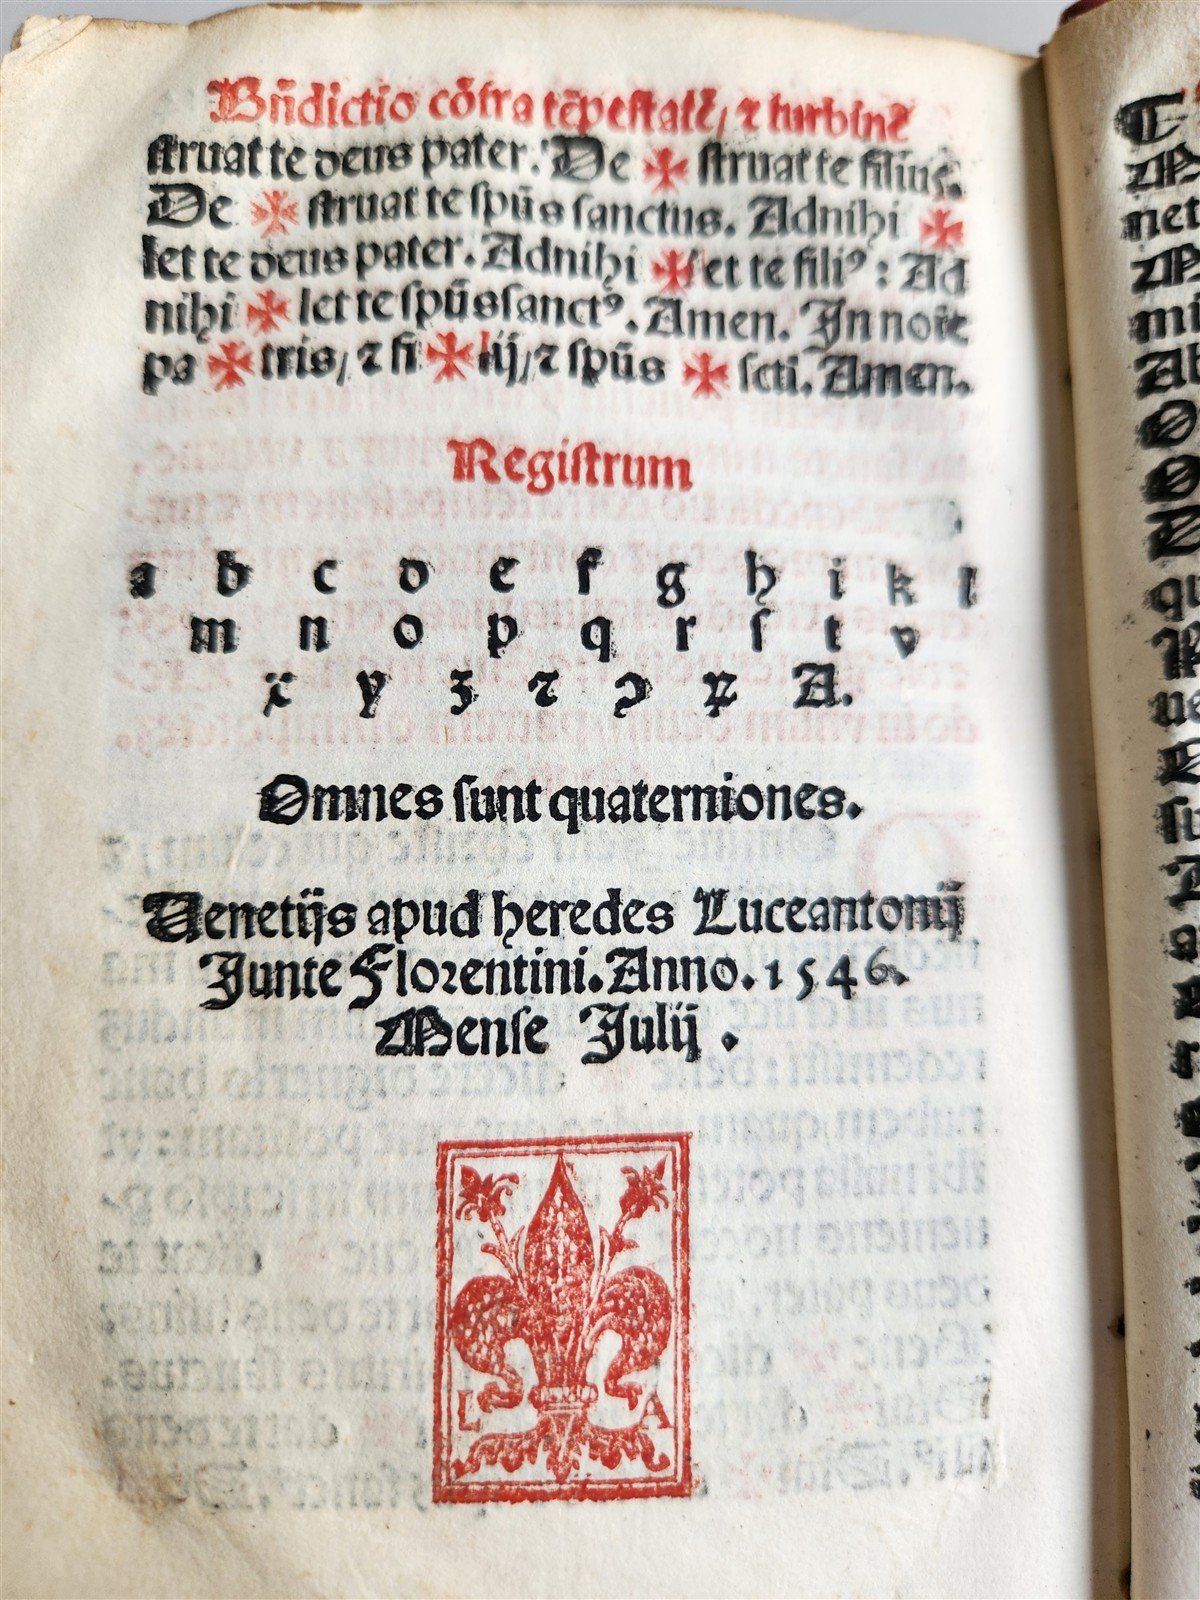 Bñdictio cõtra tẽpestatẽ/ ⁊ turbinẽ
struat te deus pater. De ✠ struat te filius.
De ✠ ſtruat te ſpũs ſanctus. Adnihi ✠
let te deus pater. Adnihi ✠ let te filiꝰ: Ad
nihi ✠ let te ſpũs ſanctꝰ. Amen. In noĩe
pa ✠ tris/ ⁊ fi ✠ lij/ ⁊ ſpũs ✠ ſcti. Amen.
Regiſtrum
a b c d e f g h i k l
m n o p q r ſ t v
x y z ⁊ ꝯ ꝝ A.
Omnes ſunt quaterniones.
Venetijs apud heredes Luceantonij
Junte Florentini. Anno. 1546.
Menſe Julij.
L A
T
net
mi
Ab
O
O
qu